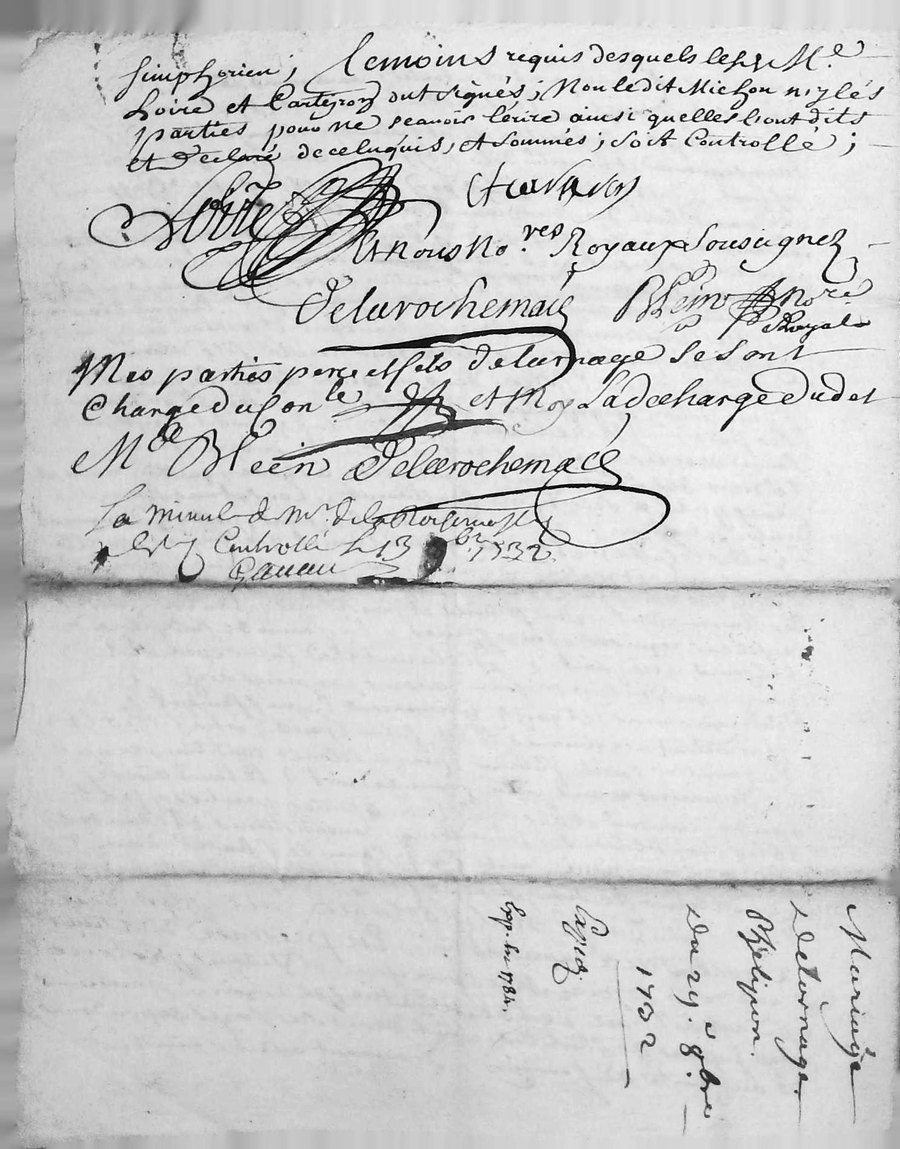 simphorien; temoins requis desquels lesd. Me.
Loire et Carteyron ont signés; Non ledit Michon ny lés
parties pour ne scavoir lérire ainsi quelles l'ont dits
et déclaré de ce enquis, et sommés; soit Controllé;
Loire
Et nous No.res Royaux Sousignez
Delarochemacé Bhein Nore
Royal
Mes parties pere et fils Delurnage se sont
Chargé du Conle et Moy La décharge dudet
Mde Bhein Delarochemacé
La minute de Mr. de la Rochemassé
a esté Controllé le 13 9bre 1732
Mariage
Delornage.
Phelipon.
Du 29.e 8.bre
1732
Expié.
Exp. en 1784.